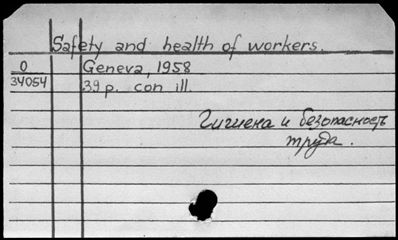 Safety and health of workers.
O
34054
Geneva, 1958
39 p. con ill.
Гигиена и безопасность
труда.